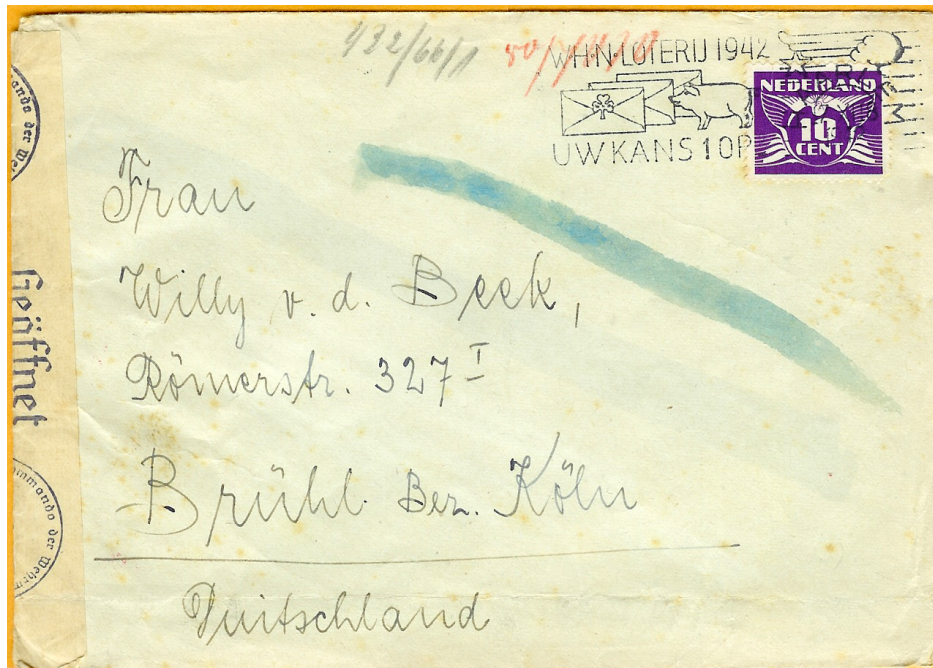 432/66/1
WHN-LOTERIJ 1942
UW KANS 1 OP
NEDERLAND
10
CENT
Frau
Willy v. d. Beek,
Römerstr. 327 I
Brühl Bez. Köln
Duitschland
Geöffnet
mando der We
ommando der Wehrm